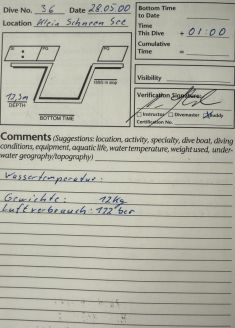 Dive No. 36 Date 28.05.00
Location See
PG PG
12,3m
DEPTH
BOTTOM TIME
Bottom Time
to Date
Time
This Dive + 01:00
Cumulative
Time =
Visibility
Verification Signature:
Instructor Divemaster Buddy
Certification No.
Comments (Suggestions: location, activity, specialty, dive boat, diving
conditions, equipment, aquatic life, water temperature, weight used, under-
water geography/topography)
Wassertemperatur:
Gewichte: 12kg
Luftverbrauch: 122 bar